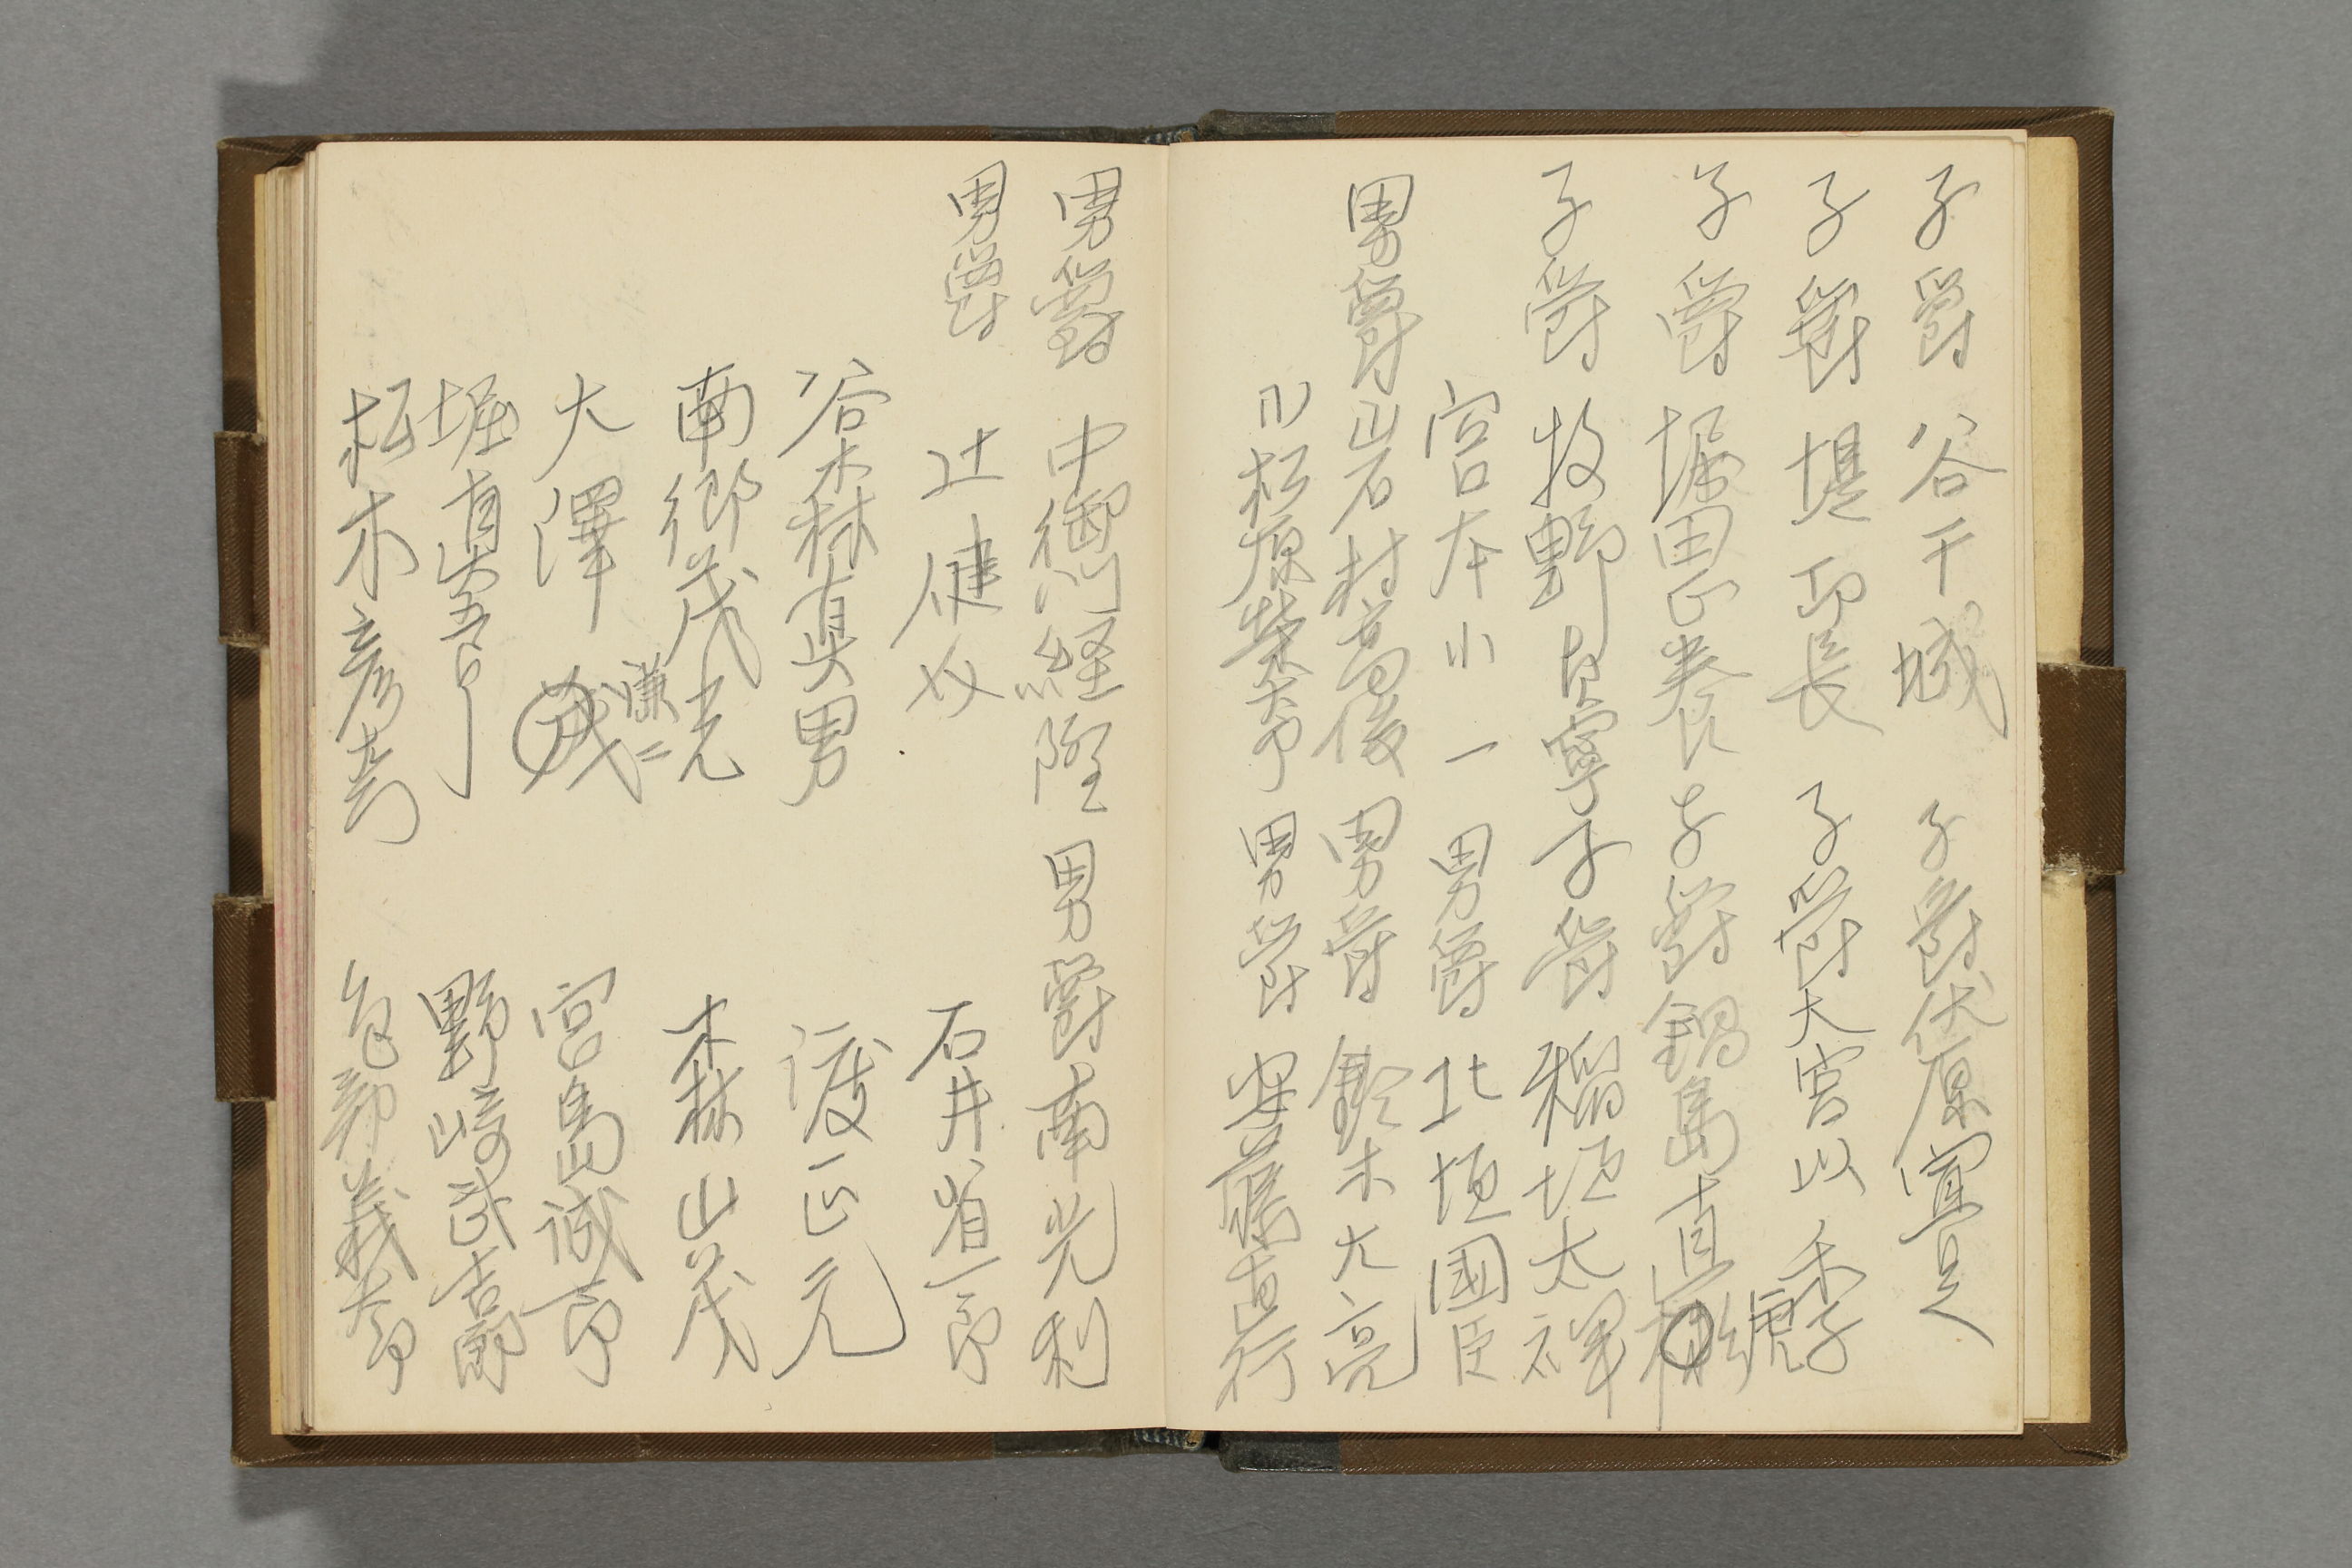 子爵 谷干城 子爵伏原宣足
子爵 堤功長 子爵大宮以季
子爵 堀田正養 子爵鍋島直彬
虎
子爵 牧野貞寧 子爵 稲垣太祥
宮本小一 男爵 北垣國臣
男爵 山岩村高俊 男爵 鈴木大亮
〃 松原 男爵 安藤直行
男爵 中御門経隆 男爵 南光利
男爵 辻健 石井省一郎
谷森真男 渡正元
南郷茂光 森山茂
謙二
大澤 宮島誠一郎
堀真五郎 野崎武吉郎
松本 義太郎